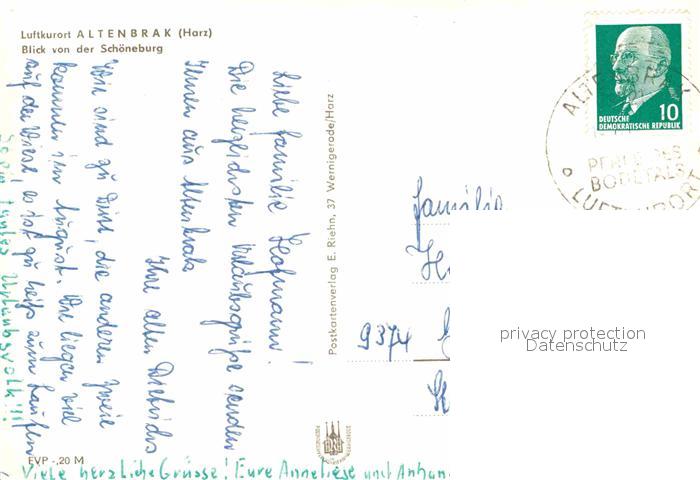 Luftkurort ALTENBRAK (Harz)
Blick von der Schöneburg
Liebe Familie Hofmann!
Die herzlichsten Urlaubsgrüße senden
Ihnen aus Altenbrak
Ihre alten
Wir sind zu Dritt, die anderen zwei
kommen im August. Wir liegen viel
auf der Wiese, es ist zu heiß zum Laufen
Urlaubsvolk!!!
Viele herzliche Grüsse! Eure Anneliese und Anhan
EVP -,20 M
Postkartenverlag E. Riehn, 37 Wernigerode/Harz
10
DEUTSCHE
DEMOKRATISCHE REPUBLIK
PERLE DES
BODETALS
LUFTKURORT
Familie
9374
privacy protection
Datenschutz